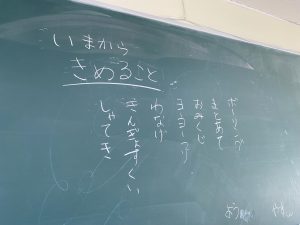 いまから
きめること
ボーリング
まとあて
おみくじ
ヨーヨーつり
わなげ
きんぎょすくい
しゃてき